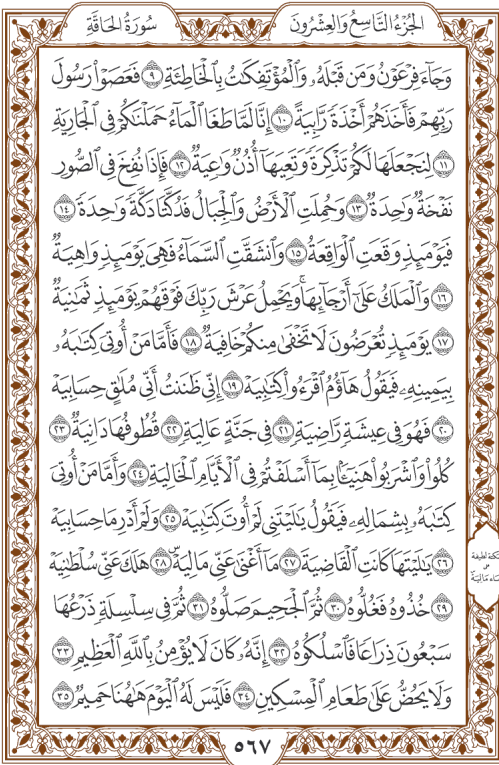 الجُزْءُ التَّاسِعُ وَالعِشْرُونَ
سُورَةُ الحَاقَّةِ
وَجَآءَ فِرْعَوْنُ وَمَن قَبْلَهُۥ وَٱلْمُؤْتَفِكَٰتُ بِٱلْخَاطِئَةِ ٩ فَعَصَوْا۟ رَسُولَ
رَبِّهِمْ فَأَخَذَهُمْ أَخْذَةً رَّابِيَةً ١٠ إِنَّا لَمَّا طَغَا ٱلْمَآءُ حَمَلْنَٰكُمْ فِى ٱلْجَارِيَةِ
١١ لِنَجْعَلَهَا لَكُمْ تَذْكِرَةً وَتَعِيَهَآ أُذُنٌ وَٰعِيَةٌ ١٢ فَإِذَا نُفِخَ فِى ٱلصُّورِ
نَفْخَةٌ وَٰحِدَةٌ ١٣ وَحُمِلَتِ ٱلْأَرْضُ وَٱلْجِبَالُ فَدُكَّتَا دَكَّةً وَٰحِدَةً ١٤
فَيَوْمَئِذٍ وَقَعَتِ ٱلْوَاقِعَةُ ١٥ وَٱنشَقَّتِ ٱلسَّمَآءُ فَهِىَ يَوْمَئِذٍ وَاهِيَةٌ
١٦ وَٱلْمَلَكُ عَلَىٰٓ أَرْجَآئِهَا ۚ وَيَحْمِلُ عَرْشَ رَبِّكَ فَوْقَهُمْ يَوْمَئِذٍ ثَمَٰنِيَةٌ
١٧ يَوْمَئِذٍ تُعْرَضُونَ لَا تَخْفَىٰ مِنكُمْ خَافِيَةٌ ١٨ فَأَمَّا مَنْ أُوتِىَ كِتَٰبَهُۥ
بِيَمِينِهِۦ فَيَقُولُ هَآؤُمُ ٱقْرَءُوا۟ كِتَٰبِيَهْ ١٩ إِنِّى ظَنَنتُ أَنِّى مُلَٰقٍ حِسَابِيَهْ
٢٠ فَهُوَ فِى عِيشَةٍ رَّاضِيَةٍ ٢١ فِى جَنَّةٍ عَالِيَةٍ ٢٢ قُطُوفُهَا دَانِيَةٌ ٢٣
كُلُوا۟ وَٱشْرَبُوا۟ هَنِيٓـًٔۢا بِمَآ أَسْلَفْتُمْ فِى ٱلْأَيَّامِ ٱلْخَالِيَةِ ٢٤ وَأَمَّا مَنْ أُوتِىَ
كِتَٰبَهُۥ بِشِمَالِهِۦ فَيَقُولُ يَٰلَيْتَنِى لَمْ أُوتَ كِتَٰبِيَهْ ٢٥ وَلَمْ أَدْرِ مَا حِسَابِيَهْ
٢٦ يَٰلَيْتَهَا كَانَتِ ٱلْقَاضِيَةَ ٢٧ مَآ أَغْنَىٰ عَنِّى مَالِيَهْ ۜ ٢٨ هَلَكَ عَنِّى سُلْطَٰنِيَهْ
٢٩ خُذُوهُ فَغُلُّوهُ ٣٠ ثُمَّ ٱلْجَحِيمَ صَلُّوهُ ٣١ ثُمَّ فِى سِلْسِلَةٍ ذَرْعُهَا
سَبْعُونَ ذِرَاعًا فَٱسْلُكُوهُ ٣٢ إِنَّهُۥ كَانَ لَا يُؤْمِنُ بِٱللَّهِ ٱلْعَظِيمِ ٣٣
وَلَا يَحُضُّ عَلَىٰ طَعَامِ ٱلْمِسْكِينِ ٣٤ فَلَيْسَ لَهُ ٱلْيَوْمَ هَٰهُنَا حَمِيمٌ ٣٥
سكتة لطيفة
على
هاء ماليه
٥٦٧